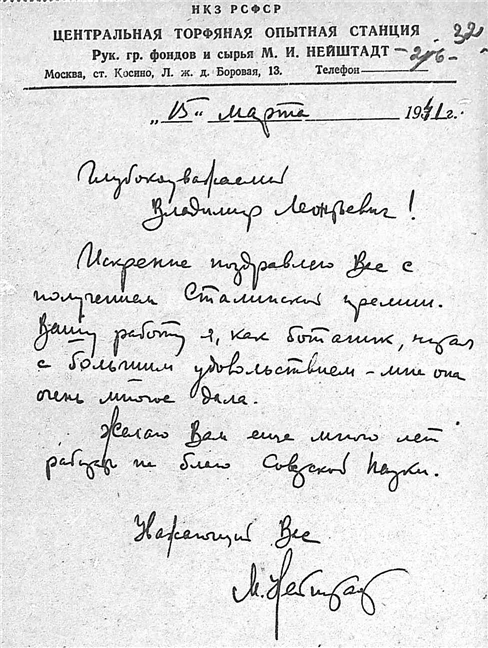 НКЗ РСФСР
ЦЕНТРАЛЬНАЯ ТОРФЯНАЯ ОПЫТНАЯ СТАНЦИЯ
Рук. гр. фондов и сырья М. И. НЕЙШТАДТ
Москва, ст. Косино, Л. ж. д. Боровая, 13. Телефон
„15“ марта 1941 г.
Глубокоуважаемый
Владимир Леонтьевич!
Искренне поздравляю Вас с
получением Сталинской премии.
Вашу работу я, как ботаник, читал
с большим удовольствием – мне она
очень многое дала.
Желаю Вам еще много лет
работать на благо Советской Науки.
Уважающий Вас
М. Нейштадт